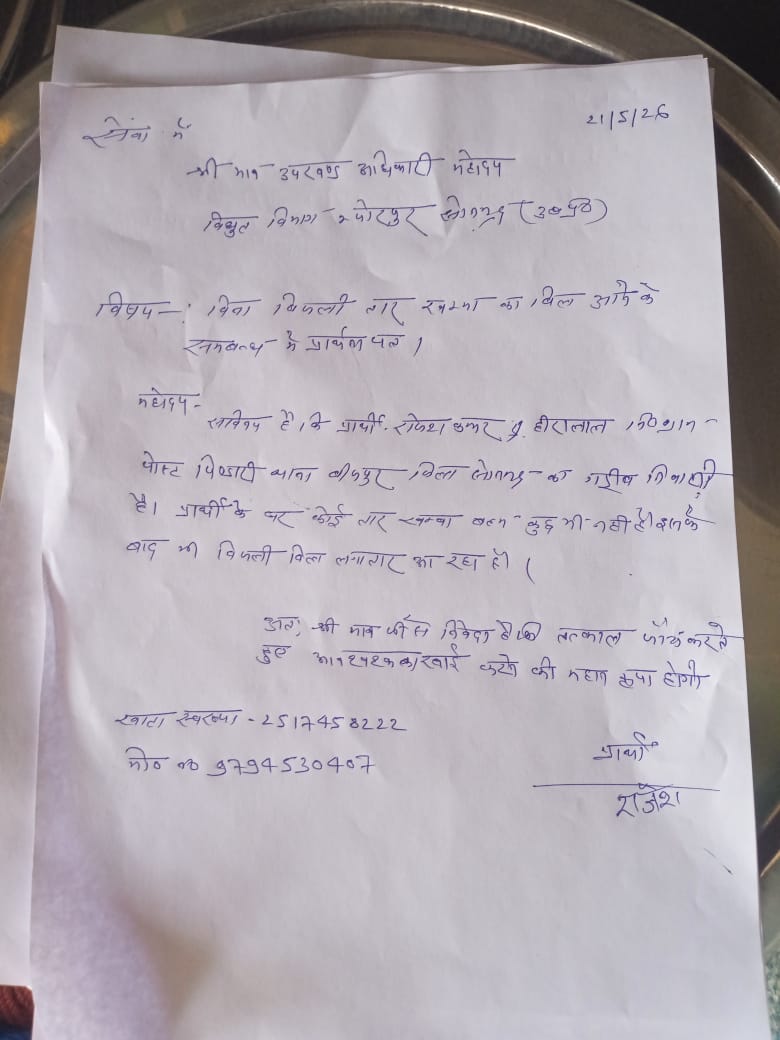 सेवा में
21/5/26
श्री मान उपखण्ड अधिकारी महोदय
विद्युत विभाग पीपुर सोनभद्र (उ०प्र०)
विषय-: बिना बिजली तार खम्भा का बिल आने के
सम्बन्ध में प्रार्थना पत्र।
महोदय-
सविनय है, कि प्रार्थी राजेश कुमार पु. हीरालाल नि० ग्राम-
पोस्ट पिण्डारी थाना बीजपुर जिला सोनभद्र का गरीब निवासी
है। प्रार्थी के घर कोई तार खम्बा कुछ भी नहीं है। इसके
बाद भी बिजली बिल लगातार आ रहा है।
अतः श्री मान जी से निवेदन है कि तत्काल जाँच करते
हुए आवश्यक कारवाई करने की महान कृपा होगी
खाता संख्या - 2517458222
मो० no 9794530407
प्रार्थी
राजेश